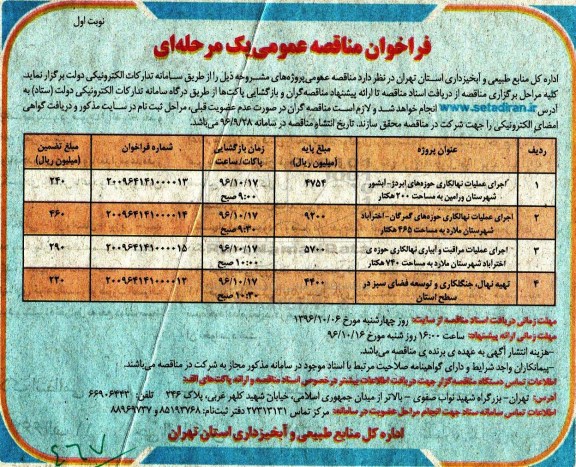 نوبت اول
فراخوان مناقصه عمومی یک مرحله‌ای
اداره کل منابع طبیعی و آبخیزداری استان تهران در نظر دارد مناقصه عمومی پروژه‌های مشروحه ذیل را از طریق سامانه تدارکات الکترونیکی دولت برگزار نماید.
کلیه مراحل برگزاری مناقصه از دریافت اسناد مناقصه تا ارائه پیشنهاد مناقصه گران و بازگشایی پاکت‌ها از طریق درگاه سامانه تدارکات الکترونیکی دولت (ستاد) به
آدرس www.setadiran.ir انجام خواهد شد و لازم است مناقصه گران در صورت عدم عضویت قبلی، مراحل ثبت نام در سایت مذکور و دریافت گواهی
امضای الکترونیکی را جهت شرکت در مناقصه محقق سازند. تاریخ انتشار مناقصه در سامانه ۹۶/۹/۲۸ می‌باشد.
ردیف عنوان پروژه مبلغ پایه (میلیون ریال) زمان بازگشایی پاکات/ساعت شماره فراخوان مبلغ تضمین (میلیون ریال)
۱ اجرای عملیات نهالکاری حوزه‌های ایردژ- آبشور شهرستان ورامین به مساحت ۲۰۰ هکتار ۴۷۵۴ ۹۶/۱۰/۱۷ ۹:۰۰ صبح ۲۰۰۹۶۴۱۴۱۰۰۰۰۱۳ ۲۴۰
۲ اجرای عملیات نهالکاری حوزه‌های گمرگان- اخترآباد شهرستان ملارد به مساحت ۴۶۵ هکتار ۹۲۰۰ ۹۶/۱۰/۱۷ ۹:۳۰ صبح ۲۰۰۹۶۴۱۴۱۰۰۰۰۱۴ ۴۶۰
۳ اجرای عملیات مراقبت و آبیاری نهالکاری حوزه ی اخترآباد شهرستان ملارد به مساحت ۷۴۰ هکتار ۵۷۰۰ ۹۶/۱۰/۱۷ ۱۰:۰۰ صبح ۲۰۰۹۶۴۱۴۱۰۰۰۰۱۵ ۲۹۰
۴ تهیه نهال، جنگلکاری و توسعه فضای سبز در سطح استان ۴۴۰۰ ۹۶/۱۰/۱۷ ۱۰:۳۰ صبح ۲۲۰
مهلت زمانی دریافت اسناد مناقصه از سایت: روز چهارشنبه مورخ ۱۳۹۶/۱۰/۰۶
مهلت زمانی ارائه پیشنهاد: ساعت ۱۶:۰۰ روز شنبه مورخ ۹۶/۱۰/۱۶
-هزینه انتشار آگهی به عهده ی برنده ی مناقصه می‌باشد.
-پیمانکاران واجد شرایط و دارای گواهینامه صلاحیت مرتبط با اسناد موجود در سامانه مذکور مجاز به شرکت در مناقصه می‌باشند.
اطلاعات تماس دستگاه مناقصه گزار جهت دریافت اطلاعات بیشتر در خصوص اسناد مناقصه و ارائه پاکت‌های الف:
آدرس: تهران- بزرگراه شهید نواب صفوی – بالاتر از میدان جمهوری اسلامی، خیابان شهید کلهر غربی، پلاک ۲۴۶ تلفن: ۶۶۹۰۶۴۴۳
اطلاعات تماس سامانه ستاد جهت انجام مراحل عضویت در سامانه: مرکز تماس ۲۷۳۱۳۱۳۱ دفتر ثبت نام: ۸۵۱۹۳۷۶۸ و ۸۸۹۶۹۷۳۷
اداره کل منابع طبیعی و آبخیزداری استان تهران